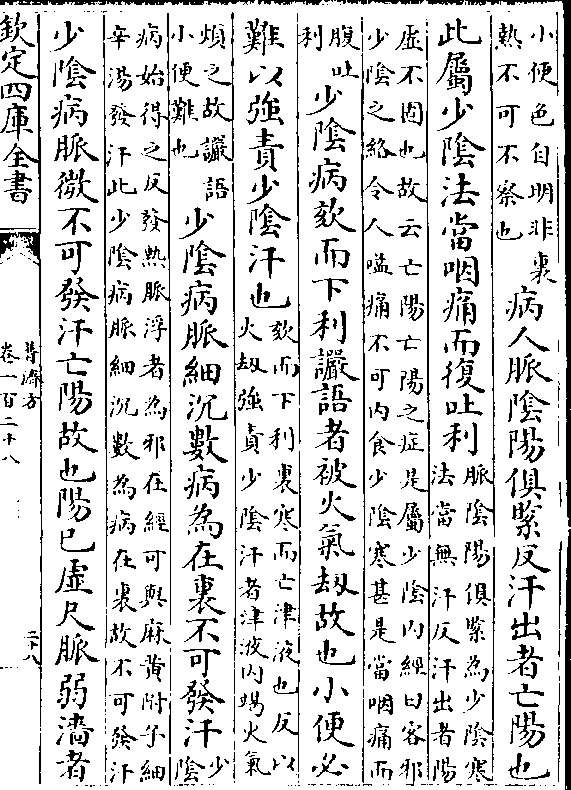 小便色自明非裏
熱不可不察也
病人脈陰陽俱緊反汗出者亡陽也
此屬少陰法當咽痛而復吐利
脈陰陽俱緊為少陰寒
法當無汗反汗出者陽
虛不固也故云亡陽亡陽之症是屬少陰内經曰客邪
少陰之絡令人嗌痛不可内食少陰寒甚是當咽痛而
腹吐
利
少陰病欬而下利讝語者被火氣刼故也小便必
難以強責少陰汗也
欬而下利裏寒而亡津液也反以
火刼強責少陰汗者津液内竭火氣
煩之故讝語
小便難也
少陰病脈細沉數病為在裏不可發汗
少
陰
病始得之反發熱脈浮者為邪在經可與麻黄附子細
辛湯發汗此少陰病脈細沉數為病在裏故不可發汗
少陰病脈微不可發汗亡陽故也陽已虛尺脈弱濇者
欽定四庫全書
普濟方
卷一百二十八
二十八